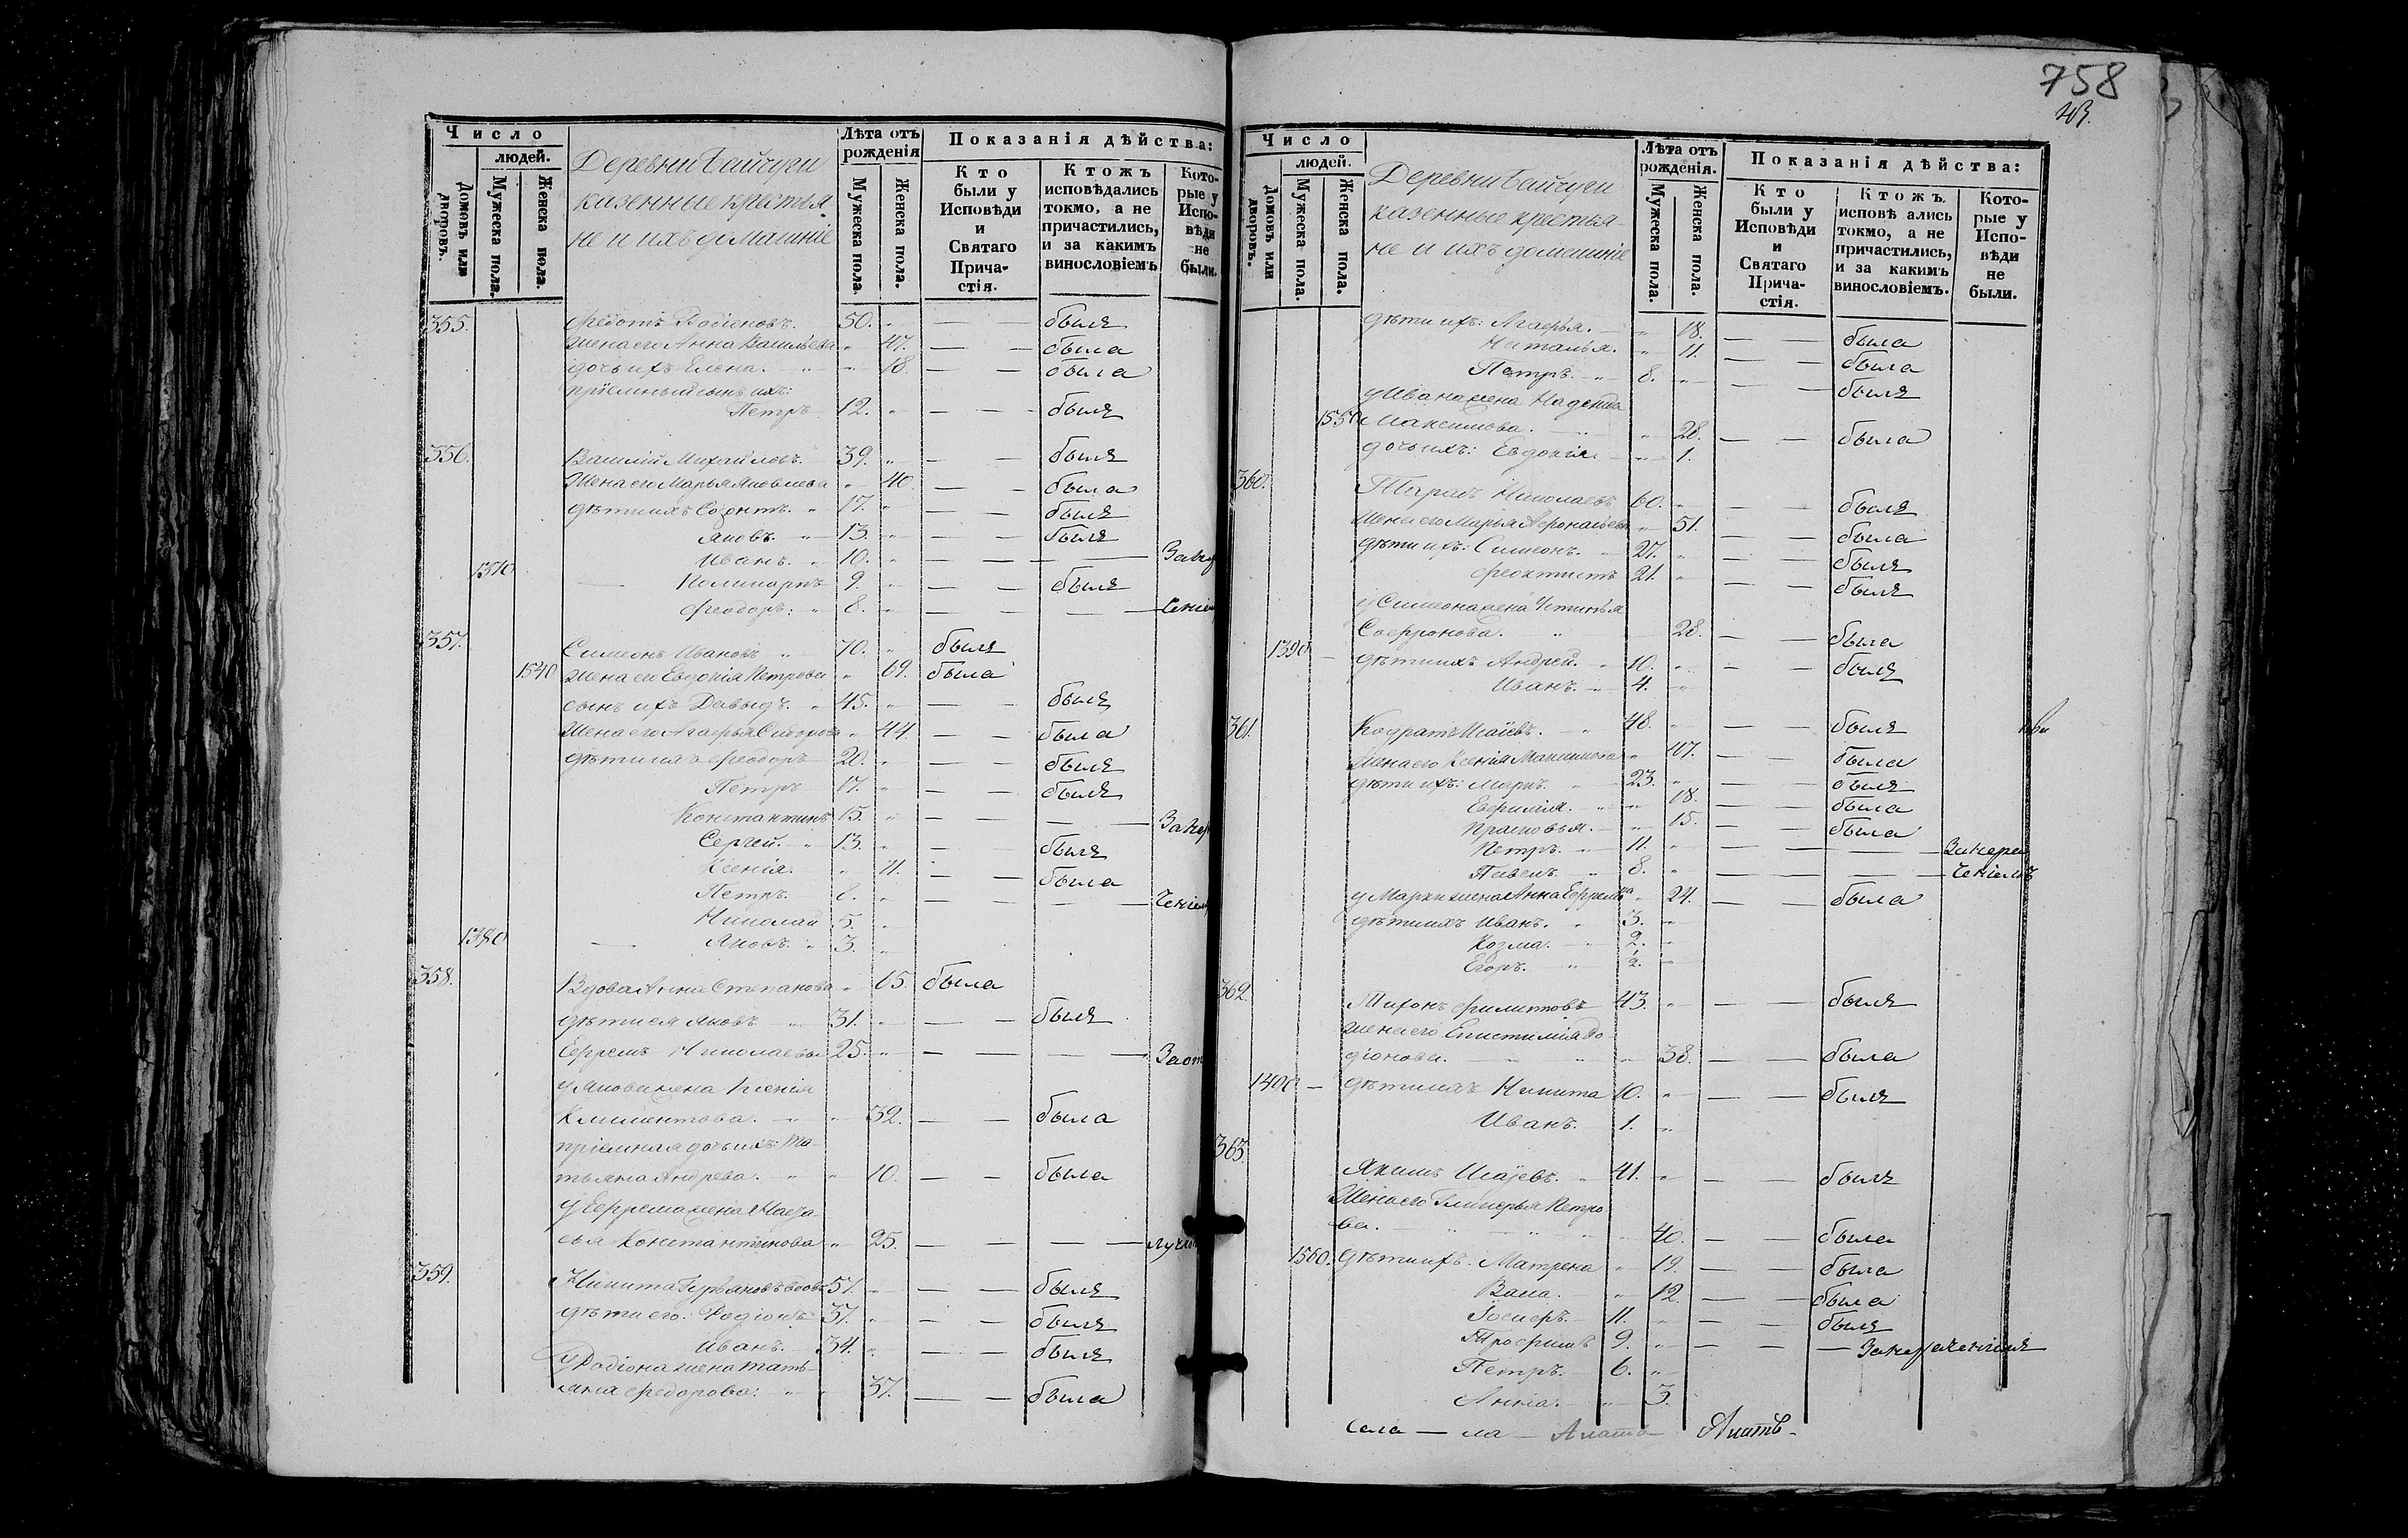 758
Число
людей.
Домовъ или дворовъ.
Мужеска пола.
Женска пола.
Деревни Байчуги
казенные крестья-
не и ихъ домашніе
Лѣта отъ рожденія
Мужеска пола.
Женска пола.
Показанія дѣйства:
Кто были у Исповѣди и Святаго Прича-стія.
Ктожъ исповѣдались токмо, а не причастились, и за какимъ винословіемъ
Кото-рые у Испо-вѣди не были.
355. Федотъ Родіоновъ. 50. " — — былъ
жена его Анна Васильева " 47. — — была
дочь ихъ Елена. " 18. — — была
пріемный сынъ ихъ:
Петръ 12. " — — былъ
356. Василій Михайловъ. 39. " — — былъ
жена его Марья Яковлева " 40. — — была
дѣти ихъ Созонтъ. " 17. " — — былъ
Яковъ. " 13. " — — былъ
Иванъ. " 10. " — — —
1370 — 9. " — — былъ
Феодоръ: " 8. " — — —
357. Симеонъ Ивановъ " 70. " былъ
1540 жена его Евдокія Петрова " 69. была
сынъ ихъ Давыдъ. " 45. " — — былъ
жена его Агафья Сидорова " 44. — — была
дѣти ихъ Феодоръ 20. " — — былъ
Петръ 17. " — — былъ
Константинъ 15. " — — —
Сергей. " 13. " — — былъ
Ксенія. " 11. — — была
Петръ. 8. " — — —
Николай 5. "
1380 — Яковъ. " 3. "
358. Вдова Анна Степанова " 65. была
дѣти ея Яковъ " 31. " — — былъ
Ефремъ Николаевы 25. " — — —
у Якова жена Ксенія
Климентова. " " 32. — — была
пріемная дочь ихъ: Та-
тьяна Андрева. " " 10. — — была
у Ефрема жена Наста-
сья Константинова " 25. — — —
359. Никита Гурьяновъ вдовъ 57. " — — былъ
дѣти его: Родіонъ 37. " — — былъ
Иванъ. — 34. " — — былъ
у Родіона жена Тать-
яна Федорова: " " 37. — — была
Число
людей.
Домовъ или дворовъ.
Мужеска пола.
Женска пола.
Деревни Байчуги
казенные крестья-
не и ихъ домашніе
Лѣта отъ рожденія.
Мужеска пола.
Женска пола.
Показанія дѣйства:
Кто были у Исповѣди и Святаго Прича-стія.
Ктожъ исповѣ ались токмо, а не причастились, и за какимъ винословіемъ.
Кото-рые у Испо-вѣди не были.
дѣти ихъ: Агафья. — " 18. — — была
Наталья. " 11. — — была
Петръ. " 8. " — — былъ
у Ивана жена Надежда
1550 Максимова. — " 28. — — была
дочь ихъ: Евдокія. " 1.
360. Николаевъ 60. " — — былъ
жена его Марья " 51. — — была
дѣти ихъ: Симеонъ. " 27. " — — былъ
Феоктистъ 21. " — — былъ
у Симеона жена Устинья
Софронова. " 28. — — была
1390 — дѣти ихъ Андрей. " 10. " — — былъ
Иванъ. " 4. "
361. Кодратъ Исаіевъ. " 48. " — — былъ
жена его Ксенія Максимова " 47. — — была
дѣти ихъ: Маркъ. " 23. " — — былъ
Евфимія. " " 18. — — была
Прасковья. " 15. — — была
Петръ. " 11. " — — —
Павелъ. " 8. " — — — ченіемъ
у Марка жена Анна Ефремова " 24. — — была
дѣти ихъ Иванъ. " 3. "
Козма. " 2. "
Егоръ. " 2. "
362. Тихонъ Филитовъ 43. " — — былъ
жена его Епистимія Ро-
діонова. " " " 38. — — была
1400 — дѣти ихъ Никита 10. " — — былъ
Иванъ. 1. "
363. Якимъ Исаіевъ. " 41. " — — былъ
жена его Гликерья Петро
ва. — " " " 40. — — была
1560. дѣти ихъ: Матрена " 19. — — была
Васа. " 12. — — была
Іосифъ. 11. " — — былъ
Трофимъ 9. " — — —
Петръ. 6. "
Анна. " 3.